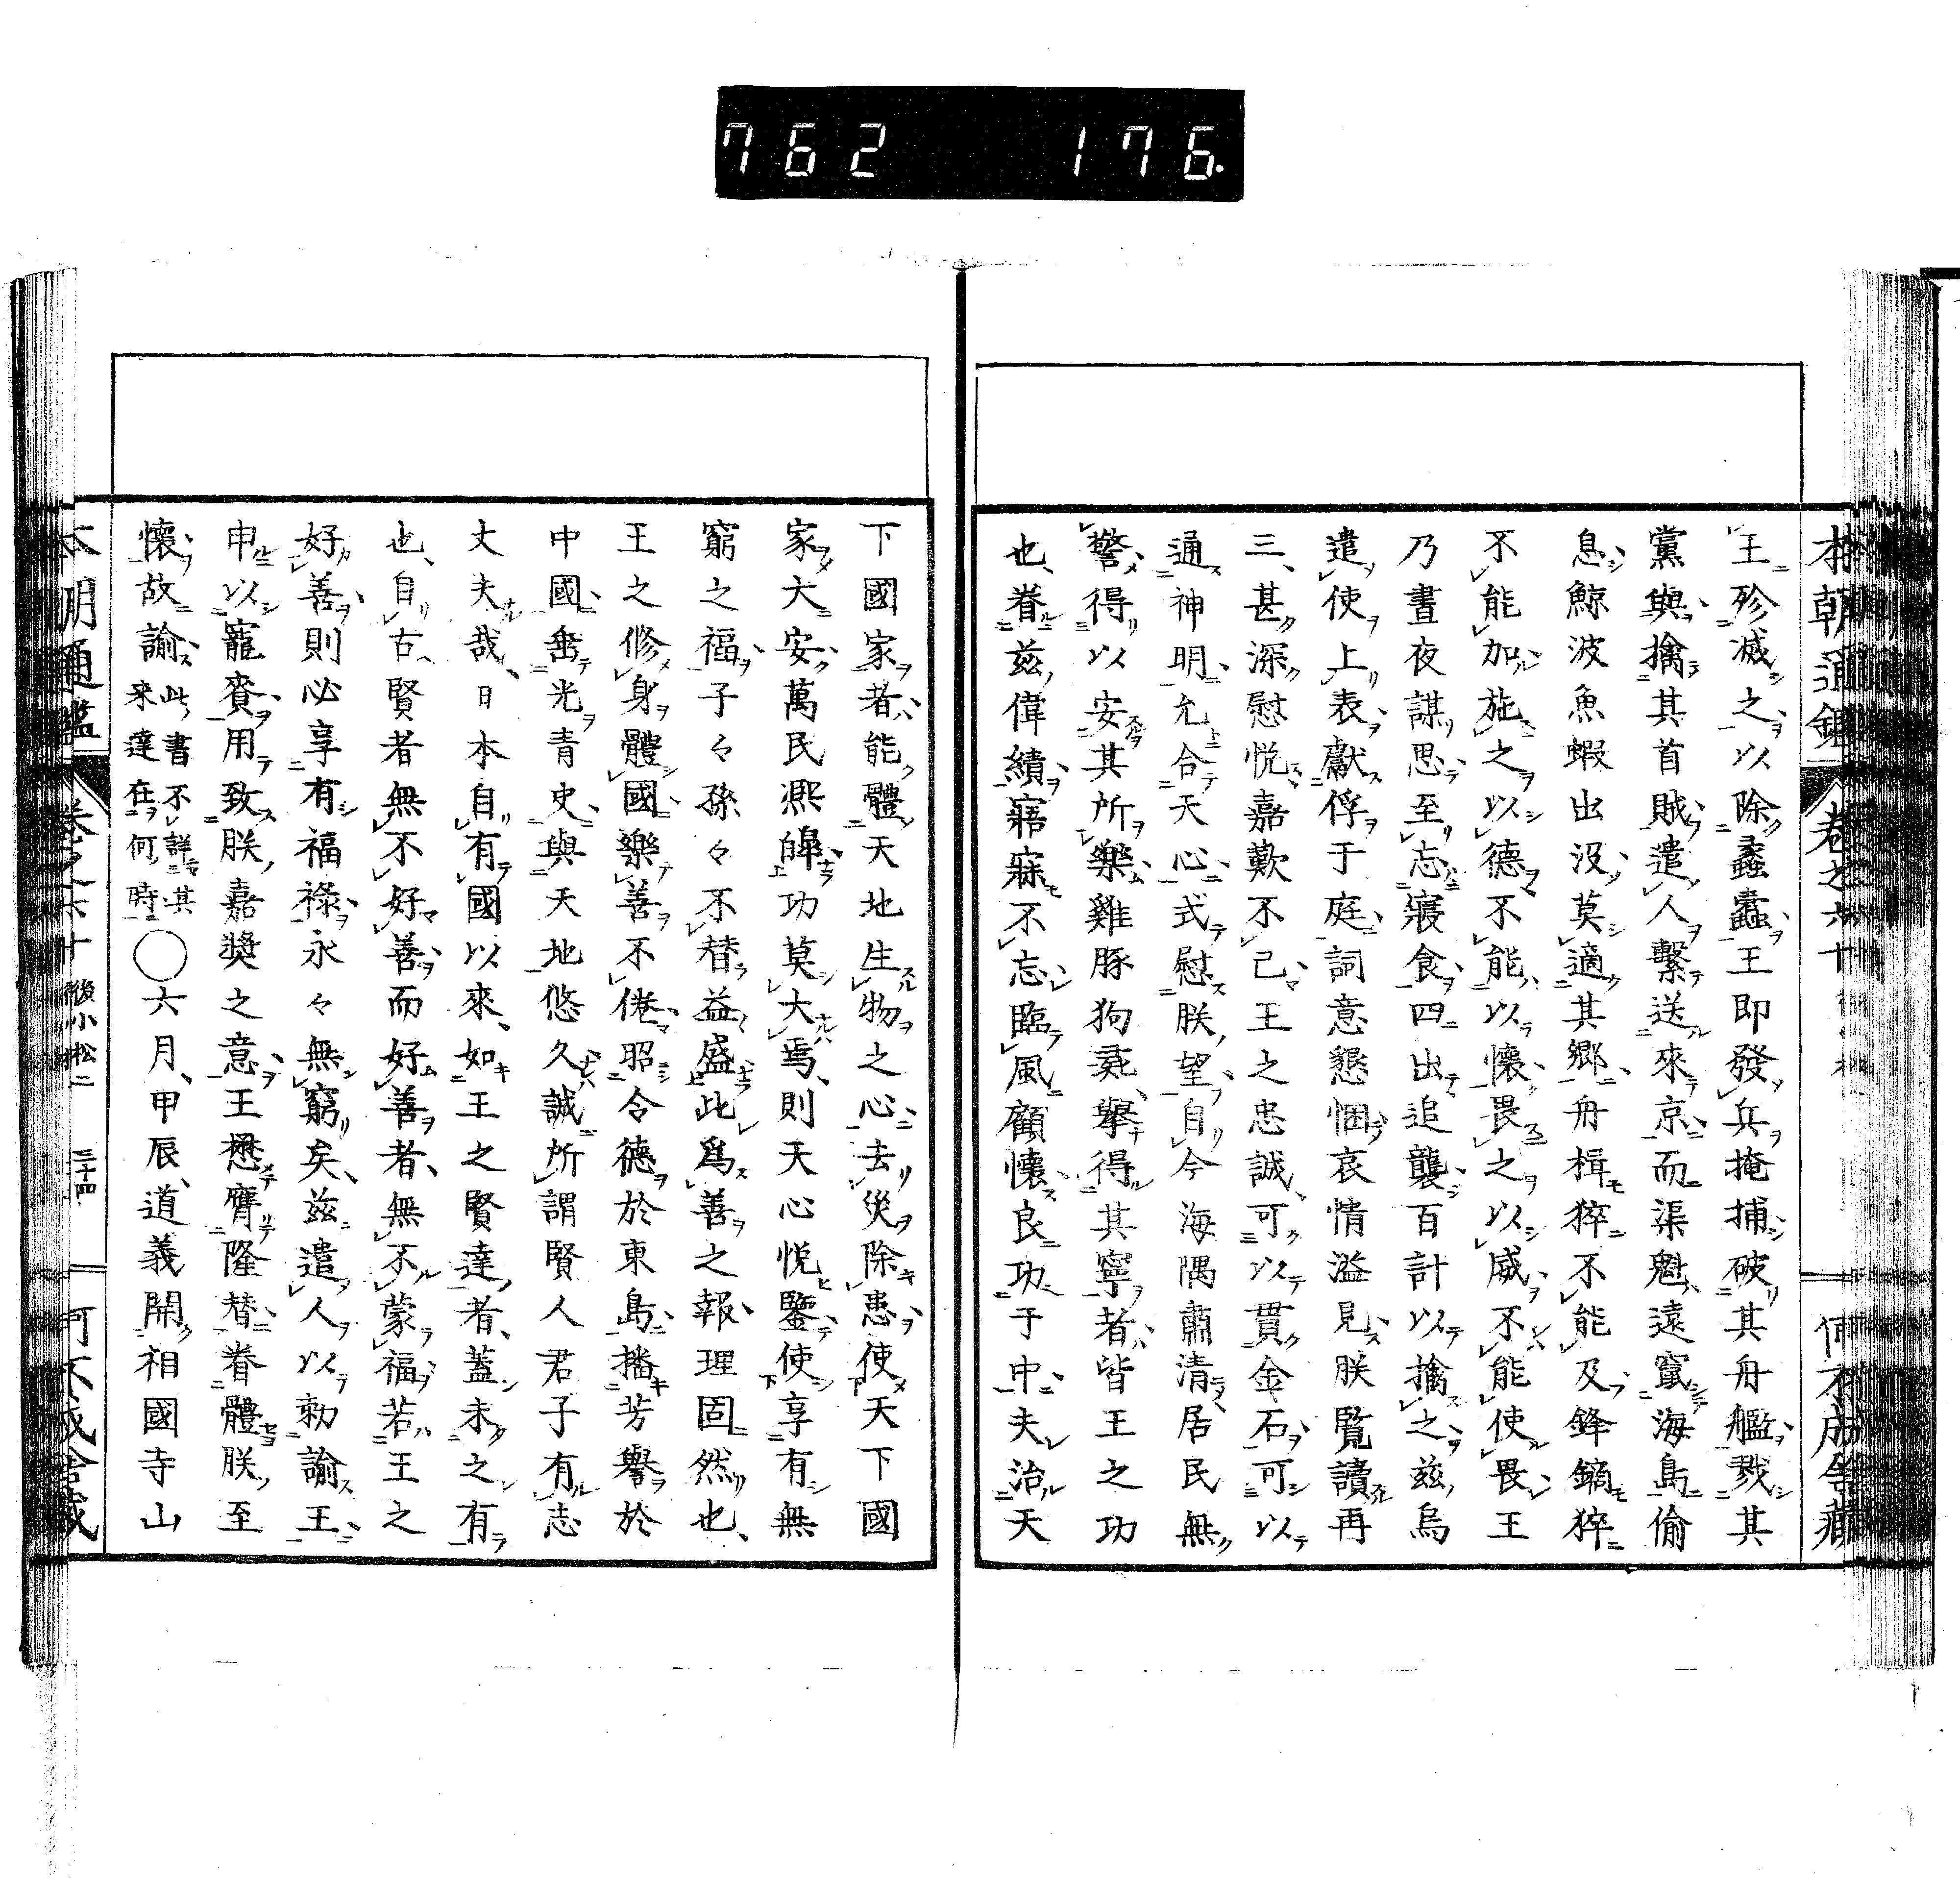 762 176.
本朝通鑑 卷之六十
王殄滅之以除蟊蠹王即發兵掩捕破其舟艦戮其
黨與擒其首賊遣人繫送來京而渠魁遠竄海島偷
息鯨波魚蝦出沒莫適其鄉舟楫猝不能及鋒鏑猝
不能加施之以德不能以懷畏之以威不能使畏王
乃晝夜謀思至忘寢食四出追襲百計以擒之茲烏
遣使上表獻俘于庭詞意懇悃哀情溢見朕覽讀再
三、甚深慰悅嘉歎不已王之忠誠可以貫金石可以
通神明允合天心式慰朕望自今海隅肅清居民無
警得以安其所樂雞豚狗彘舉得其寧者皆王之功
也、眷茲偉績寤寐不忘臨風顧懷良功于中夫治天
下國家者能體天地生物之心去災除患使天下國
家大安萬民熙皞功莫大焉、則天心悅鑒使享有無
窮之福子々孫々不替益盛此為善之報理固然也、
王之修身體國樂善不倦昭令德於東島播芳譽於
中國垂光青史與天地悠久誠所謂賢人君子有志
丈夫哉、日本自有國以來、如王之賢達者、蓋未之有
也、自古賢者無不好善而好善者、無不蒙福若王之
好善則必享有福祿永々無窮矣、茲遣人以勅諭王
申以寵賚用致朕嘉獎之意王懋膺隆替眷體朕至
懷故諭 此書不詳其
來達在何時 ○六月、甲辰、道義開相國寺山
本朝通鑑 卷之六十 後小松二 三十四